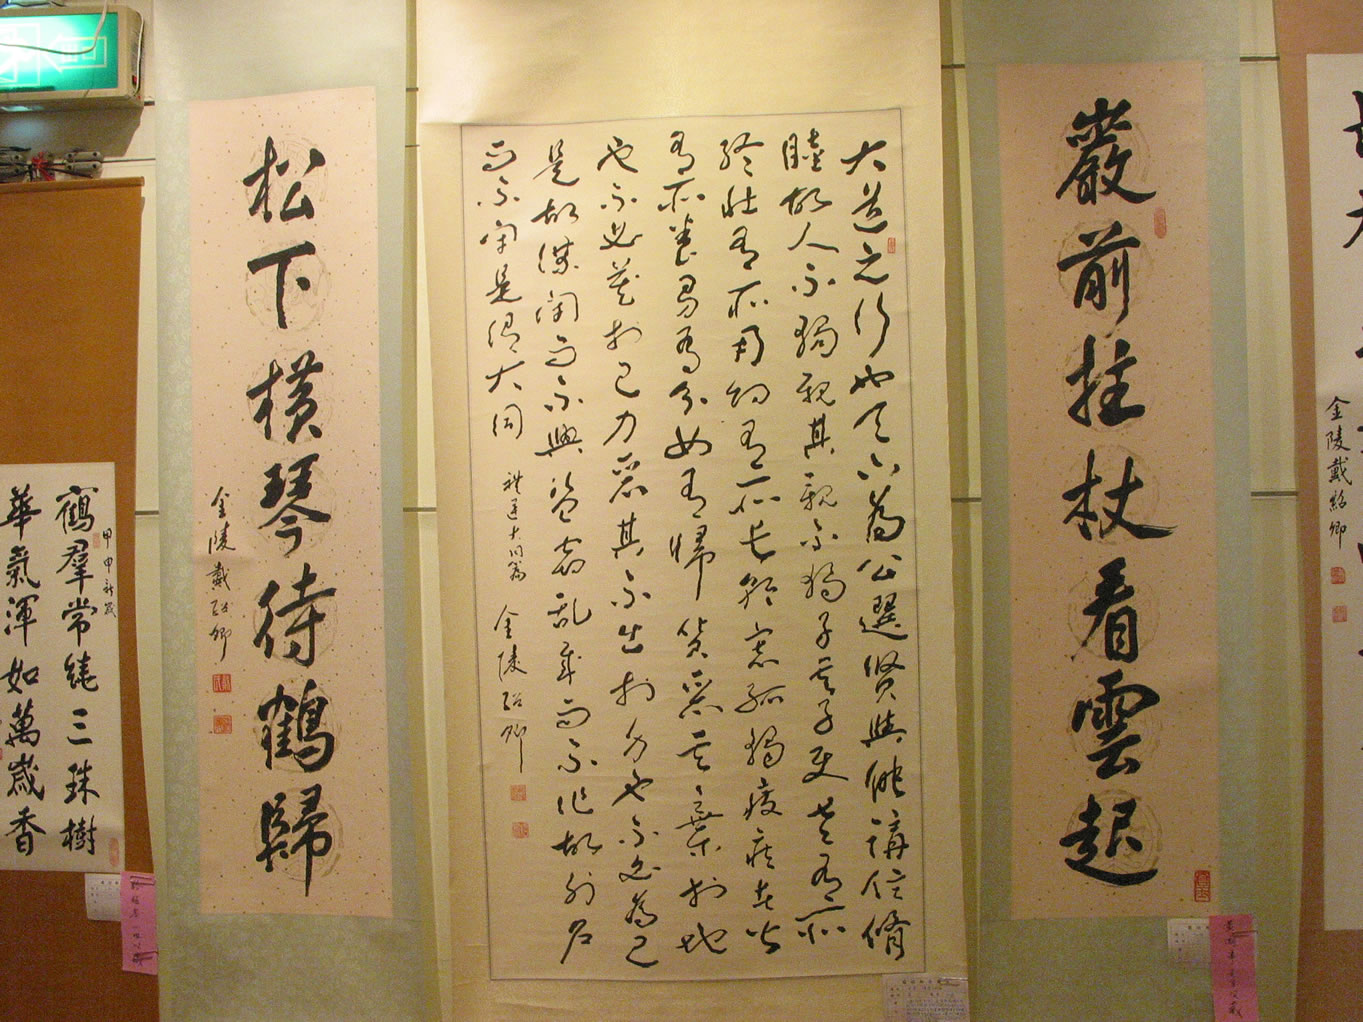 金陵戴紹卿
巖前拄杖看雲起
大道之行也天下為公選賢與能講信脩
睦故人不獨親其親不獨子其子使老有所
終壯有所用幼有所長矜寡孤獨廢疾者皆
有所養男有分女有歸貨惡其棄於地
也不必藏於己力惡其不出於身也不必為己
是故謀閉而不興盜竊亂賊而不作故外戶
而不閉是謂大同 禮運大同篇 金陵紹卿
松下橫琴待鶴歸
金陵戴紹卿
甲申新歲
鶴羣常繞三珠樹
華氣渾如萬歲香